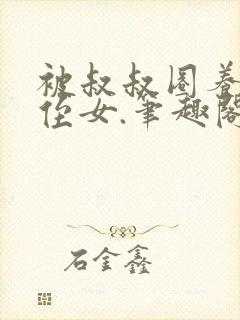 被叔叔圈养
侄女.笔趣阁
石金鑫